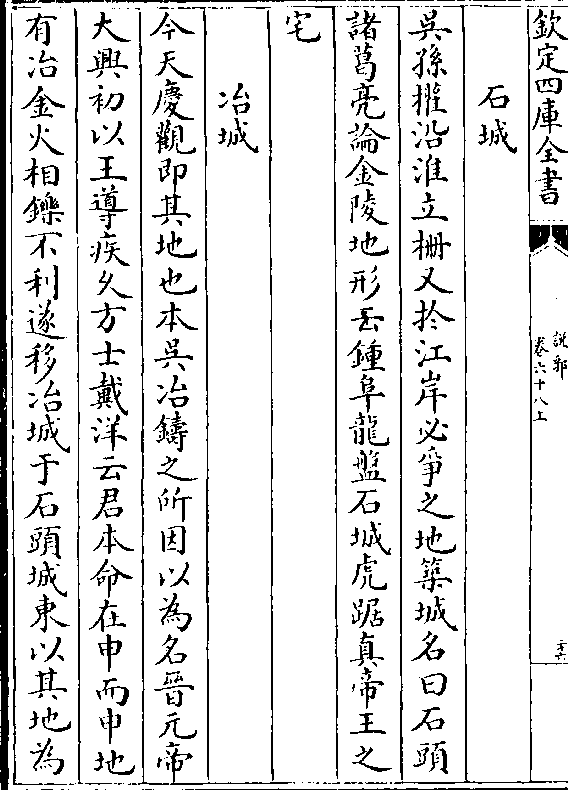 欽定四庫全書
說郛
卷六十八上
二六
石城
吳孫權沿淮立柵又於江岸必爭之地築城名曰石頭
諸葛亮論金陵地形云鍾阜龍盤石城虎踞真帝王之
宅
冶城
今天慶觀即其地也本吳冶鑄之所因以為名晉元帝
大興初以王導疾久方士戴洋云君本命在申而申地
有冶金火相鑠不利遂移冶城于石頭城東以其地為